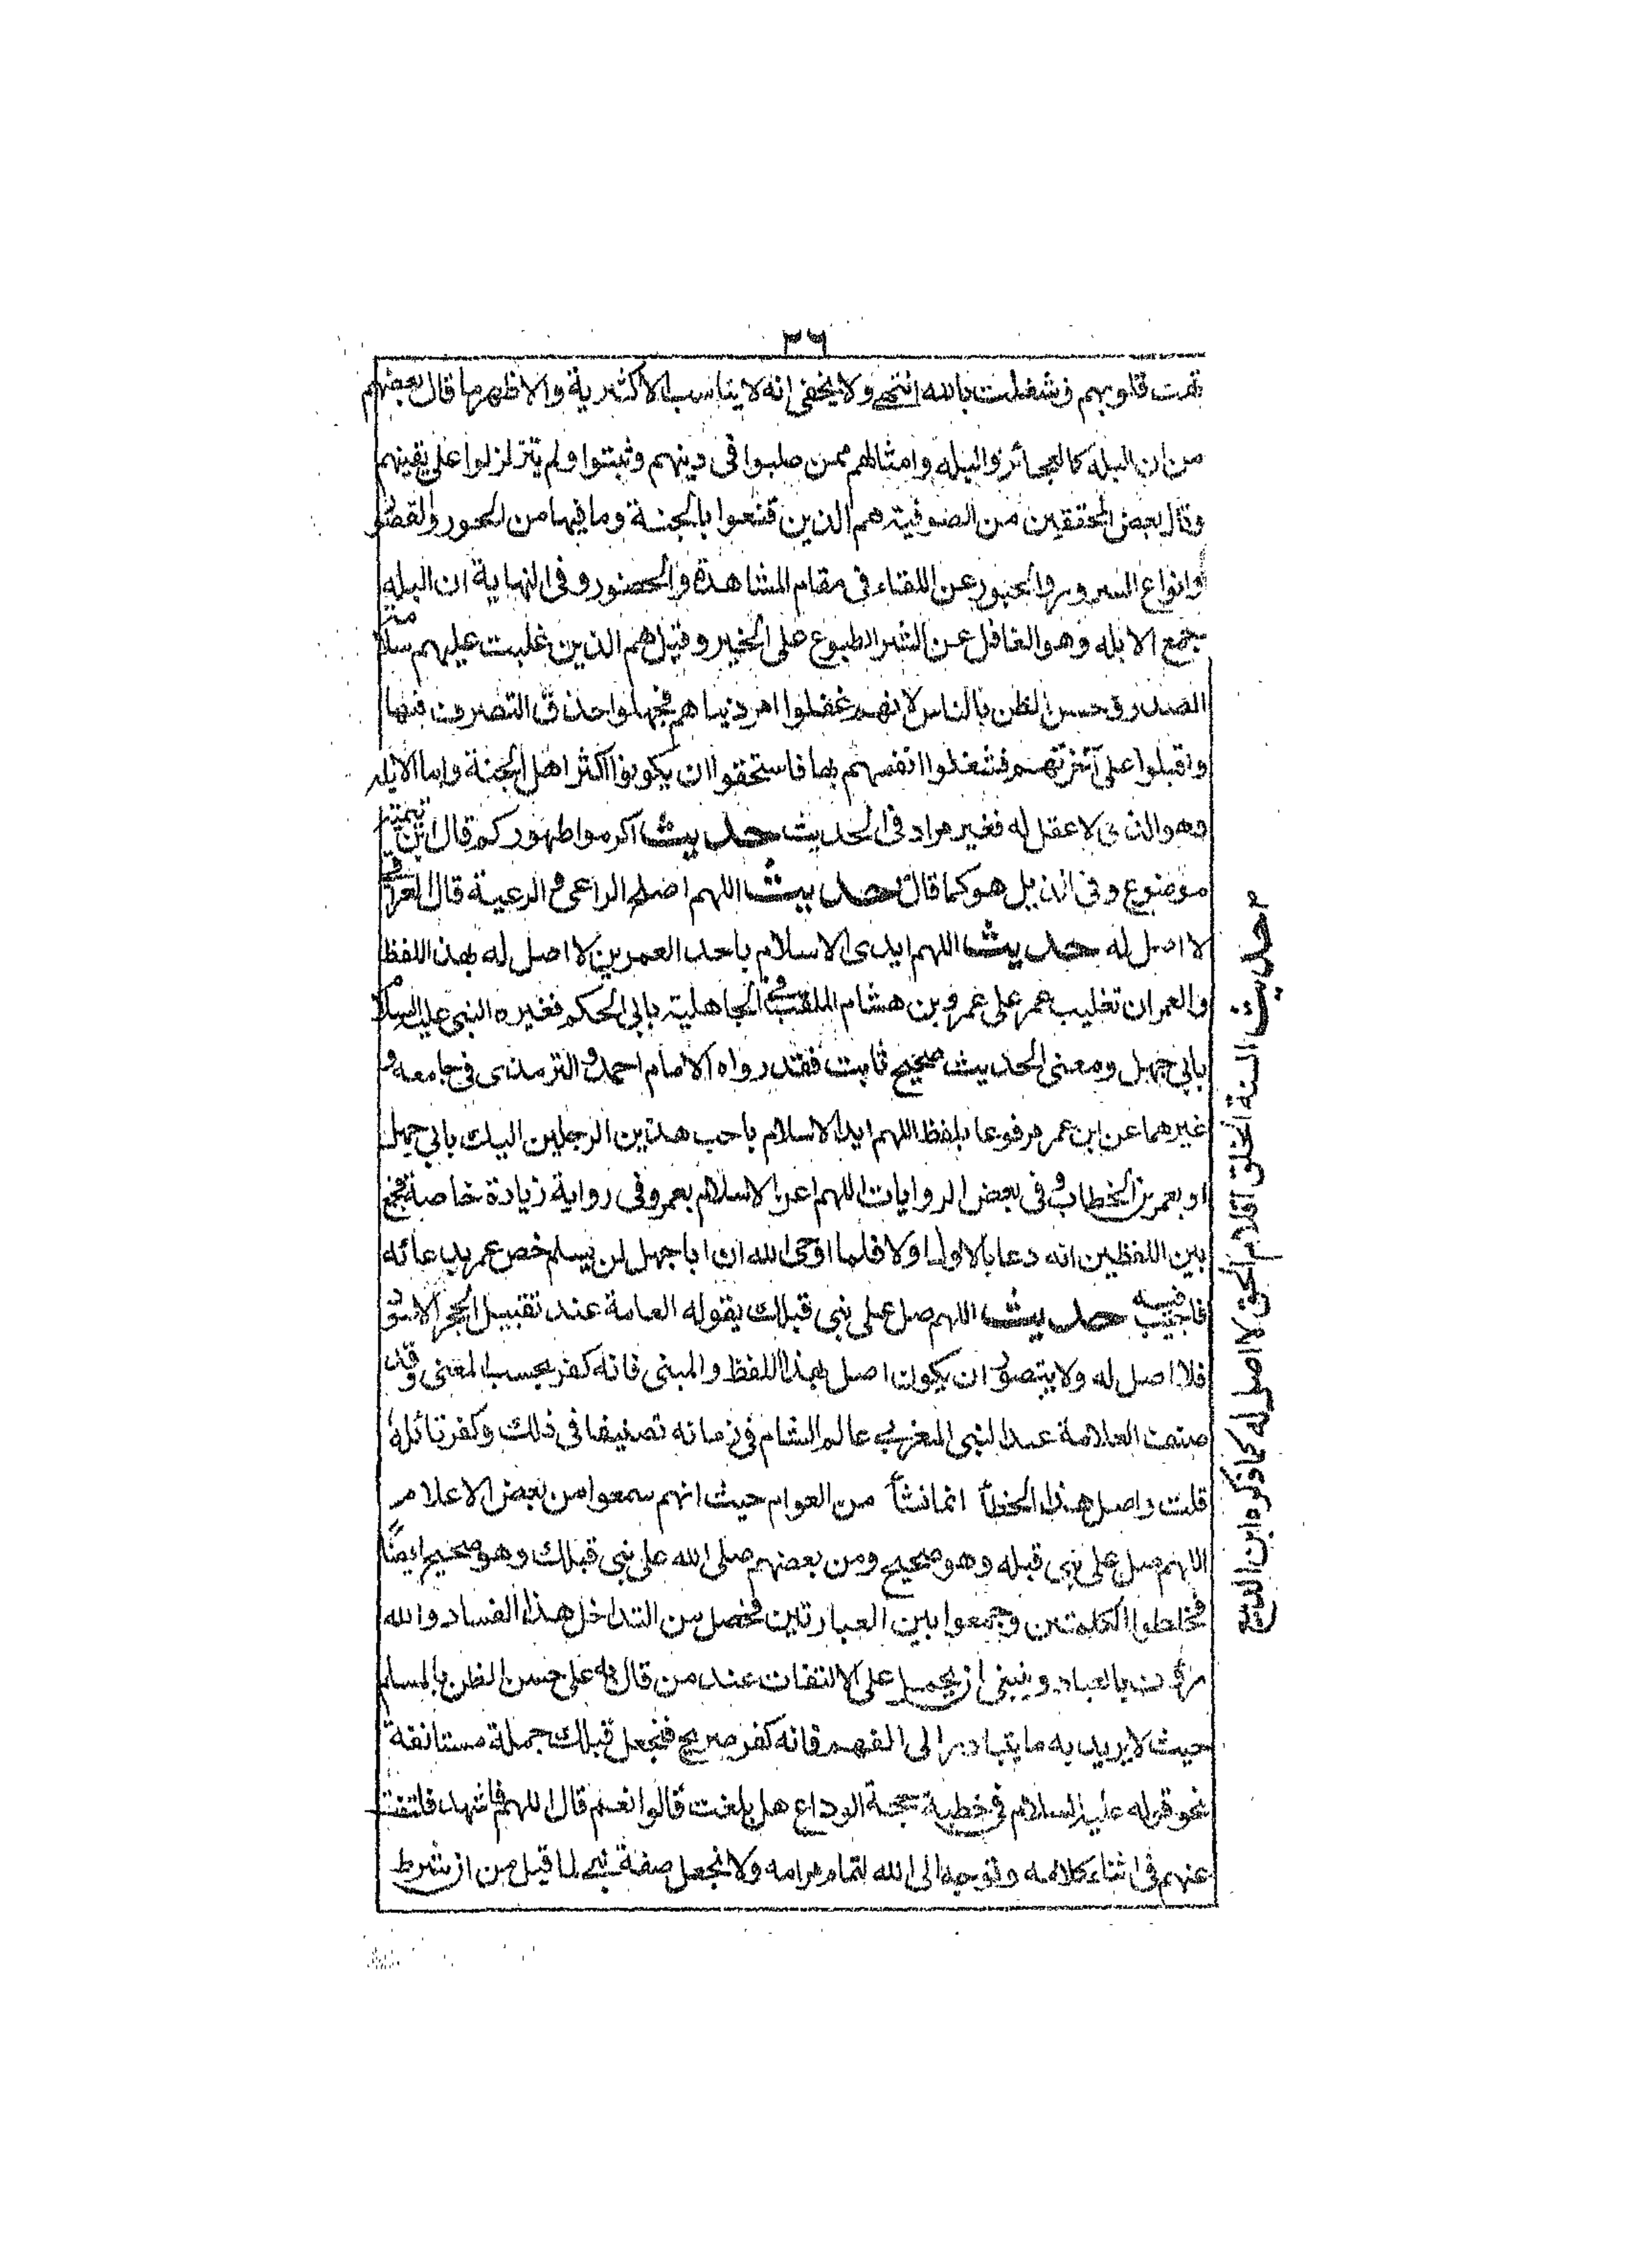 ٣٦
قلوبهم وشغلت بالله انتهى ولا يخفى انه لا يناسب الاكثرية والاظهر ما قال بعضهم
من ان البله كالعجائز والبله وامثالهم ممن صلبوا فى دينهم وثبتوا ولم يتزلزلوا على يقينهم
وقال بعض المحققين من الصوفية هم الذين قنعوا بالجنة وما فيها من الحور والقصور
وانواع السرور والحبور عن اللقاء فى مقام المشاهدة والحضور وفى النهاية ان البله
جمع الابله وهو الغافل عن الشر المطبوع على الخير وقيل هم الذين غلبت عليهم سلامة
الصدر وحسن الظن بالناس لانهم غفلوا امر دنياهم فجهلوا حذق التصرف فيها
واقبلوا على آخرتهم فشغلوا انفسهم بها فاستحقوا ان يكونوا اكثر اهل الجنة واما الابله
وهو الذى لا عقل له فغير مراد فى الحديث حديث اكرموا طهوركم قال ابن تيمية
موضوع وفى الذيل هو كما قال حديث اللهم اصلح الراعى والرعية قال العراقى
لا اصل له حديث اللهم ايدى الاسلام باحد العمرين لا اصل له بهذ اللفظ
والعمران تغليب عمر على عمرو بن هشام الملقب فى الجاهلية بابى الحكم فغيره النبى عليه السلام
بابى جهل ومعنى الحديث صحيح ثابت فقد رواه الامام احمد والترمذى فى جامعه و
غيرهما عن ابن عمر مرفوعا بلفظ اللهم ايد الاسلام باحب هذين الرجلين اليك بابى جهل
او بعمر بن الخطاب وفى بعض الروايات اللهم اعز الاسلام بعمر وفى رواية زيادة خاصة فجمع
بين اللفظين انه دعا بالاول اولا فلما اوحى الله ان ابا جهل لن يسلم خص عمر بدعائه
فاجيب فيه حديث اللهم صل على نبى قبلك يقوله العامة عند تقبيل الحجر الاسود
فلا اصل له ولا يتصور ان يكون اصل بهذا اللفظ والمبنى فانه كفر بحسب المعنى وقد
صنف العلامة عبد النبى المغربى عالم الشام فى زمانه تصنيفا فى ذلك وكفر قائله
قلت واصل هذا الخطأ انما نشأ من العوام حيث انهم سمعوا من بعض الاعلام
اللهم صل على نبى قبله وهو صحيح ومن بعضهم صلى الله على نبى قبلك وهو صحيح ايضًا
فخلطوا الكلمتين وجمعوا بين العبارتين فحصل من التداخل هذا الفساد والله
رؤف بالعباد وينبغى ان يحمل على الالتفات عند من قال به على حسن الظن بالمسلم
حيث لا يريد به ما يتبادر الى الفهم فانه كفر صريح فنجعل قبلك جملة مستانفة
نحو قوله عليه السلام فى خطبة حجة الوداع هل بلغت قالوا نعم قال اللهم فاشهد فلتفت
عنهم فى اثناء كلامه وتوجه الى الله لتمام مرامه ولا نجعل صفة نبى لما قيل من ان شرط
حديث السنة الخلق اقلام الحق لا اصل له كما ذكره ابن الديبع